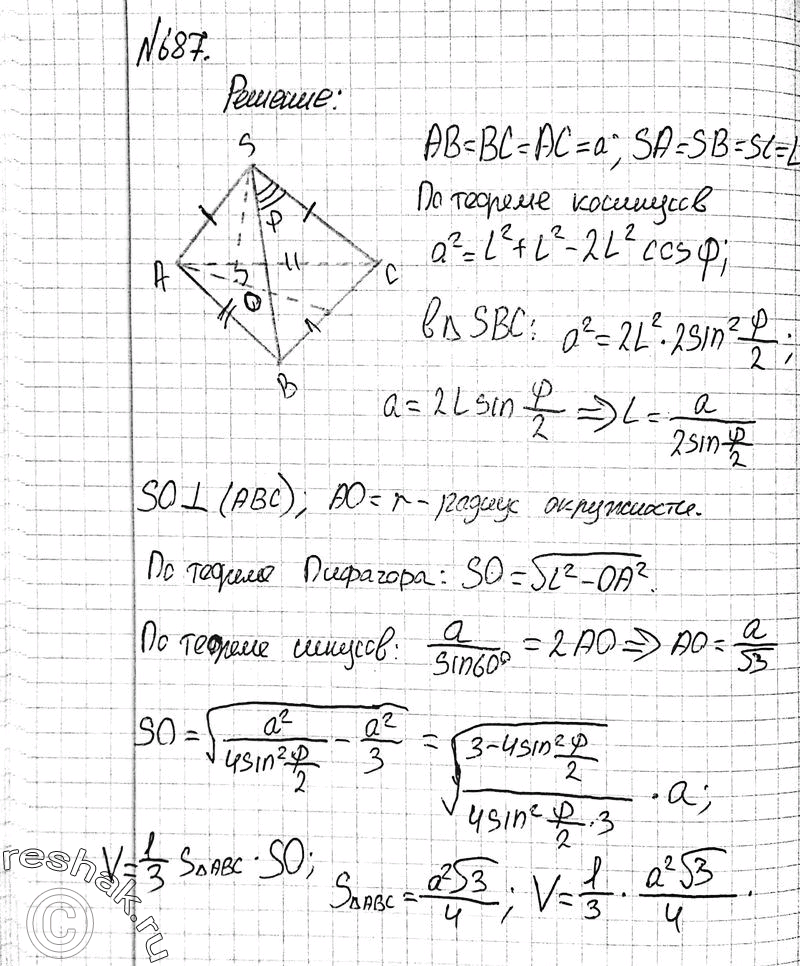 №687.
Решение:
AB=BC=AC=a; SA=SB=SC=L
По теореме косинусов
a²=L²+L²-2L² cosφ;
в△SBC: a²=2L²·2sin² φ/2;
a=2L sin φ/2 ⇒ L= a/(2sin φ/2)
S
φ
A
O
C
B
SO⊥(ABC); AO=r-радиус окружности.
По теореме Пифагора: SO=√(L²-OA²).
По теореме синусов: a/sin60° = 2AO ⇒ AO= a/√3
SO=√(a²/(4sin² φ/2) - a²/3) = √((3-4sin² φ/2)/(4sin² φ/2 ·3)) · a;
V=1/3 S△ABC · SO; S△ABC= a²√3/4; V= 1/3 · a²√3/4 ·
reshak.ru
©